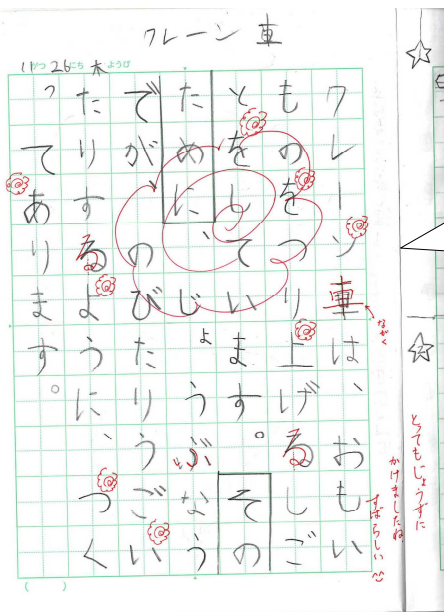 クレーン車
11がつ26にち木ようび
クレーン車は、おもい
ものをつり上げるしご
とをしています。その
ために、じょうぶなう
でがのびたりうごい
たりするように、つく
ってあります。
ながく
とてもじょうずに
かけましたね
すばらしい